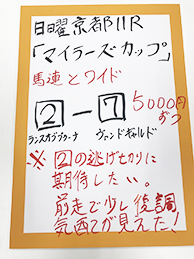 日曜京都11R
「マイラーズカップ」
馬連とワイド
2－7 5000円ずつ
ランスオブプラーナ ヴァンドギャルド
※2の逃げ切りに
期待したい。
前走で少し復調
気配が見えた!